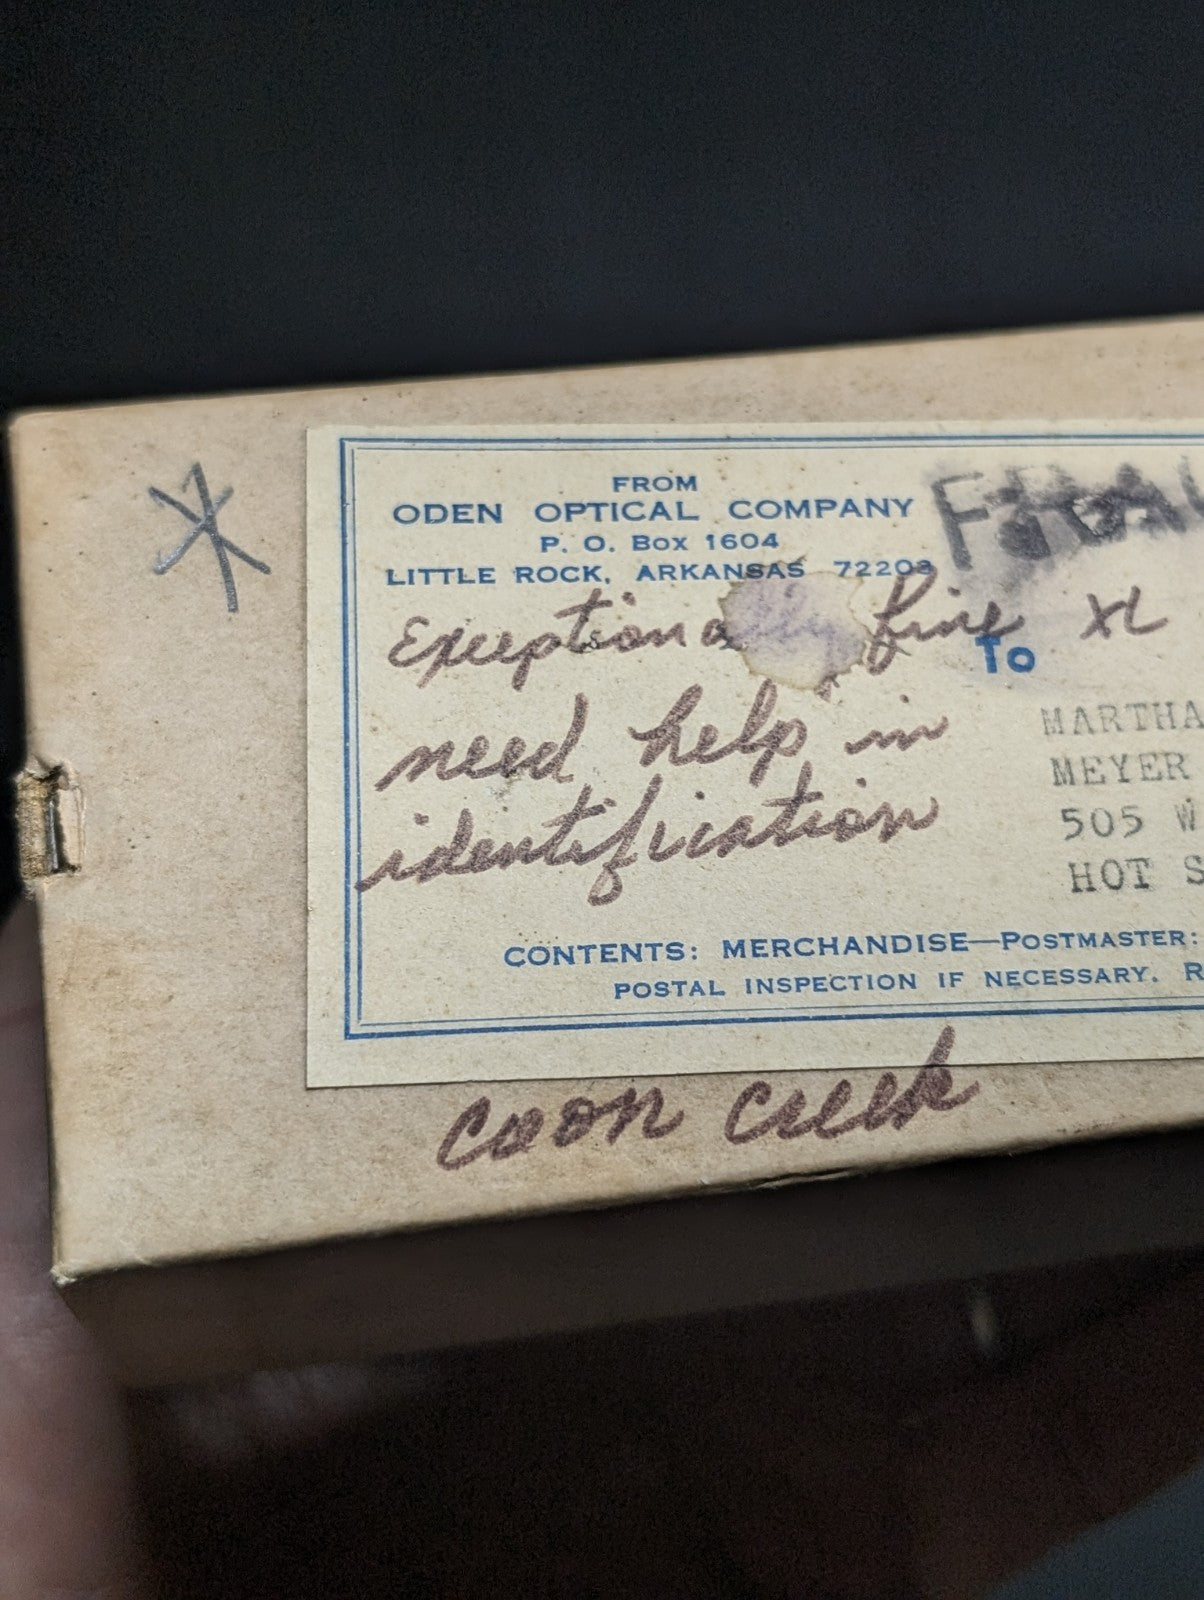 FROM
ODEN OPTICAL COMPANY
P. O. Box 1604
LITTLE ROCK, ARKANSAS 72203
Exceptionally fine XL
To
need help in
MARTHA
identification
MEYER
505 W
HOT S
CONTENTS: MERCHANDISE—POSTMASTER:
POSTAL INSPECTION IF NECESSARY. R
coon creek